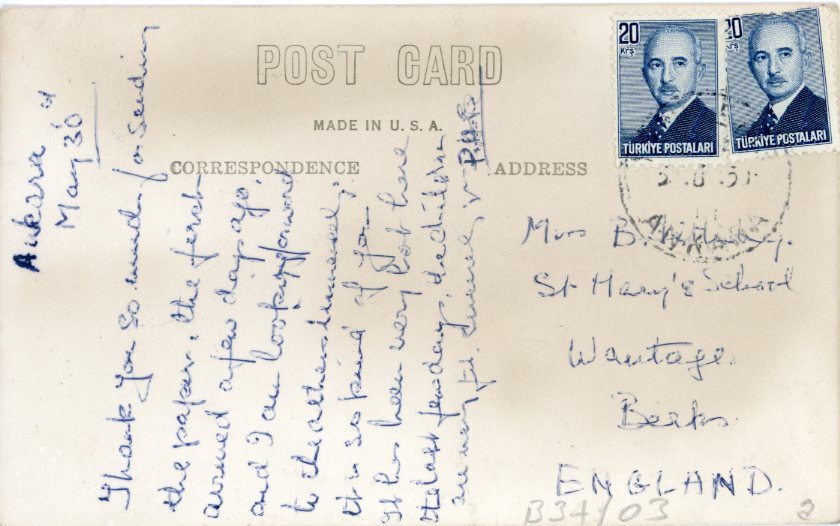 POST CARD
MADE IN U. S. A.
CORRESPONDENCE
ADDRESS
20
Krş
TÜRKİYE POSTALARI
20
Krş
TÜRKİYE POSTALARI
51
ANKARA
Ankara
May 30
Thank you so much for sending
the paper, the first
arrived a few days ago,
and I am looking forward
to the others immensely;
it is so kind of you.
It has been very hot here
the last few days, the children
are very fit.
Mrs B.
St Mary's School
Wantage.
Berks.
ENGLAND.
B34/03
2